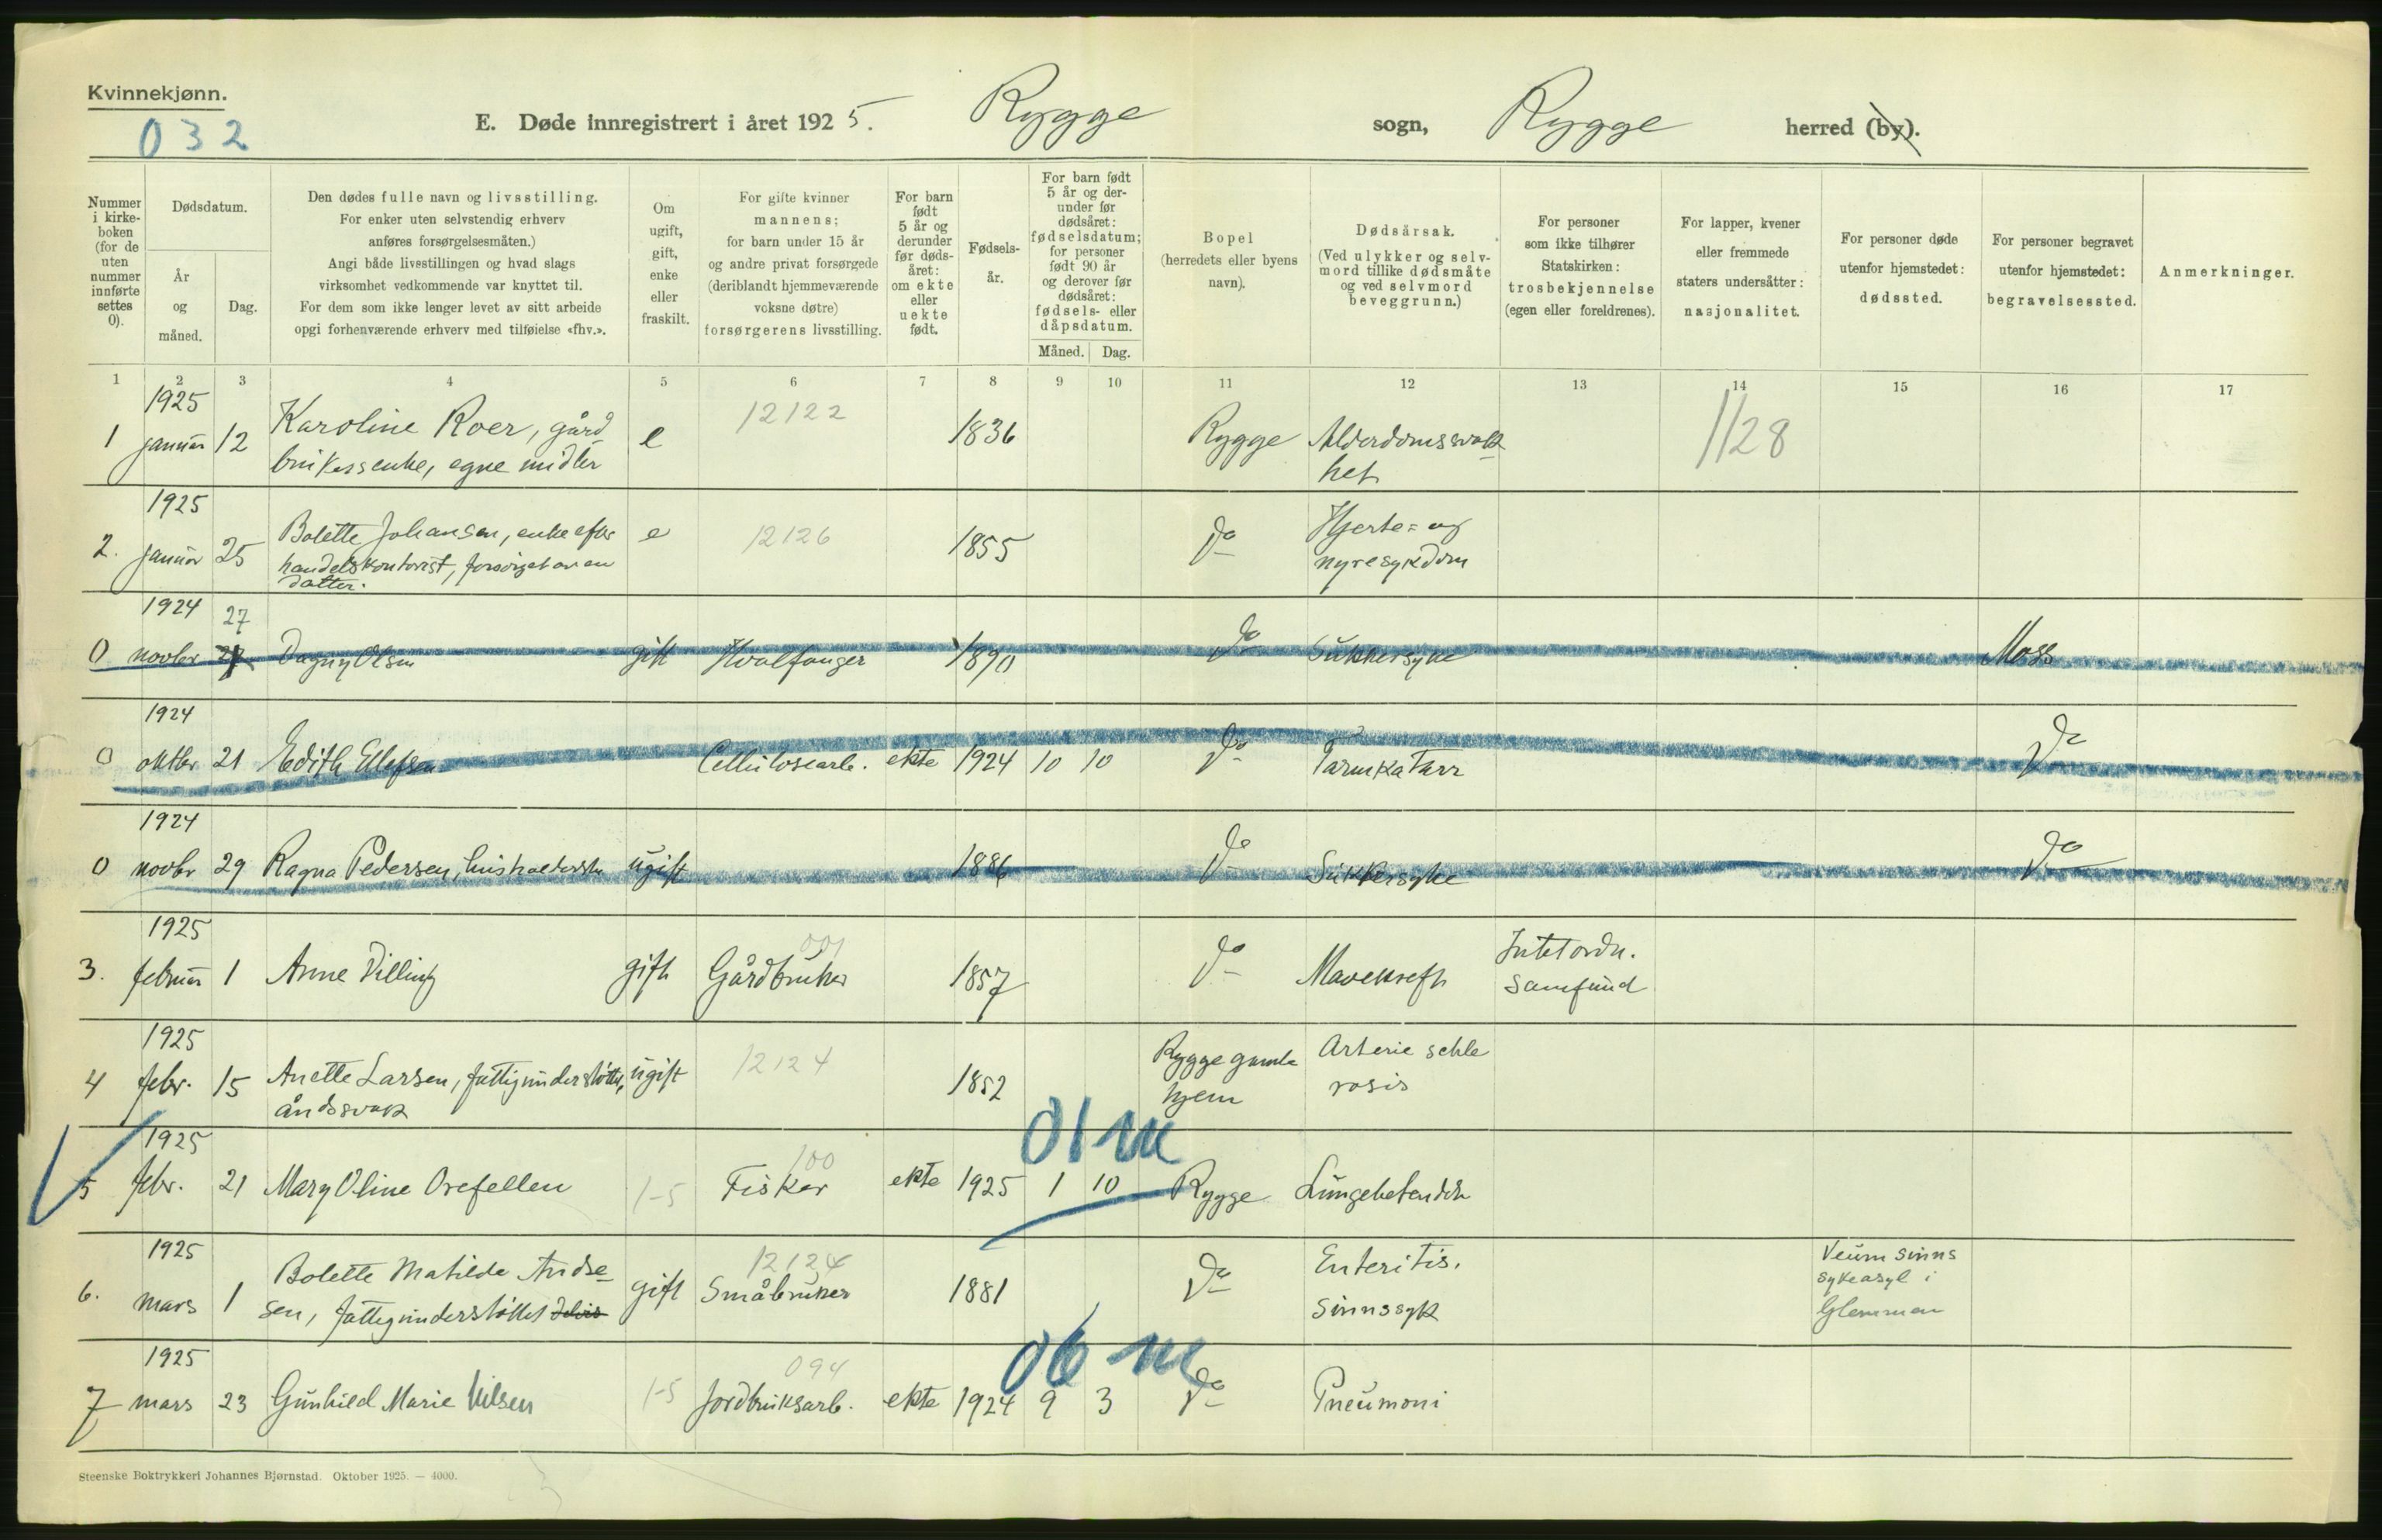 Kvinnekjønn.
032
E. Døde innregistrert i året 1925. Rygge sogn, Rygge herred (by).
Nummer i kirkeboken (for de uten nummer innførte settes 0).
Dødsdatum.
År og måned.
Dag.
Den dødes fulle navn og livsstilling.
For enker uten selvstendig erhverv
anføres forsørgelsesmåten.)
Angi både livsstillingen og hvad slags
virksomhet vedkommende var knyttet til.
For dem som ikke lenger levet av sitt arbeide
opgi forhenværende erhverv med tilføielse «fhv.».
Om ugift, gift, enke eller fraskilt.
For gifte kvinner
mannens;
for barn under 15 år
og andre privat forsørgede
(deriblandt hjemmeværende
voksne døtre)
forsørgerens livsstilling.
For barn født 5 år og derunder før dødsåret: om ekte eller uekte født.
Fødselsår.
For barn født 5 år og derunder før dødsåret: fødselsdatum; for personer født 90 år og derover før dødsåret: fødsels- eller dåpsdatum.
Måned. Dag.
Bopel
(herredets eller byens
navn).
Dødsårsak.
(Ved ulykker og selvmord tillike dødsmåte og ved selvmord beveggrunn.)
For personer
som ikke tilhører
Statskirken:
trosbekjennelse
(egen eller foreldrenes).
For lapper, kvener
eller fremmede
staters undersåtter:
nasjonalitet.
For personer døde
utenfor hjemstedet:
dødssted.
For personer begravet
utenfor hjemstedet:
begravelsessted.
Anmerkninger.
1 2 3 4 5 6 7 8 9 10 11 12 13 14 15 16 17
1925
1 januar 12 Karoline Roer, gård e 12122 1836 Rygge Alderdomssvak 1128
brukersenke, egne midler het
1925
2. januar 25 Bolette Johansen, enke efter e 12126 1855 do Hjerte= og
handelskontorist, forsørget av en nyresykdom
datter.
1924 27
0 novbr 27 Dagny Olsen gift Hvalfanger 1890 do Sukkersyke Moss
1924
0 oktbr 21 Edith Ellefsen Cellulosearb. ekte 1924 10 10 do Tarmkatarr do
1924
0 novbr 29 Ragna Pedersen, husholderske ugift 1886 do Sukkersyke do
1925
3. februar 1 Anne Dilling gift Gårdbruker 001 1857 do Mavekreft Intet ordn.
samfund
1925
4 febr. 15 Anette Larsen, fattigunderstøttet, ugift 12124 1852 Rygge gamle Arterie schle
åndssvak hjem rosis
1925 01 m
5 febr. 21 Mary Oline Orefellen 1-5 Fisker 100 ekte 1925 1 10 Rygge Lungebetendelse
1925
6. mars 1 Bolette Matilde Andre gift 12124 Småbruker 1881 do Enteritis. Veum sinns
sen, fattigunderstøttet delvis Sinnssyk sykeasyl i
Glemmen
1925 06 m
7 mars 23 Gunhild Marie Nilsen 1-5 Jordbruksarb. 094 ekte 1924 9 3 do Pneumoni
Steenske Boktrykkeri Johannes Bjørnstad. Oktober 1925. — 4000.